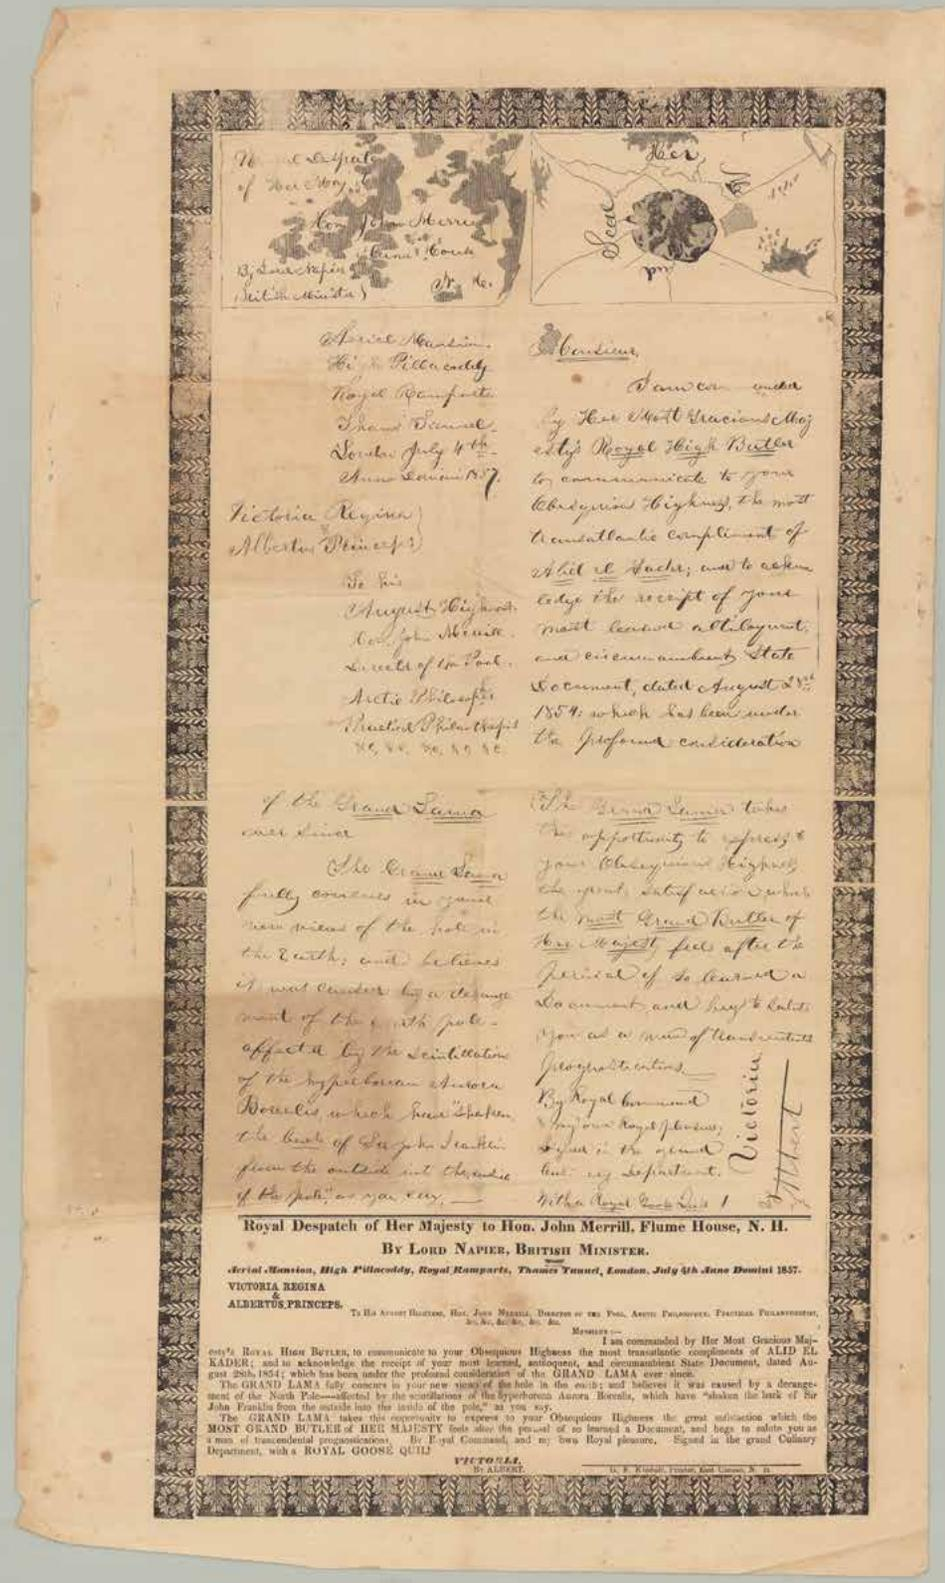 of Her Maj
Hon John Merri
By Lord Napier
British Minister)
Her
Seal
and
Aerial Mansion.
Hi Pillacoddy
Royal Ramparts
Tunnel
London July 4th
Anno Domini 1857.
Victoria Regina
&
Albertus Princeps
To his
August Highness
Hon. John Merrill.
Director of the Pool.
Arctic Philosophy
Practical Philanthropist
&c, &c, &c, &c, &c.
Monsieur,
I am com anded
by Her Most Gracious Maj
esty's Royal High Butler
to communicate to your
Obsequious Highness, the most
transatlantic compliment of
Alid el Kader; and to acknow
ledge the receipt of your
most learned
and circumambient State
Document, dated August 28th
1854: which has been under
the profound consideration
of the Grand Lama
ever since
The Grand Lama
fully concurs in your
new views of the hole in
the Earth; and believes
it was caused by a derange
ment of the North pole-
affected by the scintillation
of the hyperborean Aurora
Borealis which have "shaken
the back of Sir John Franklin
from the outside into the inside
of the pole," as you say.
The Grand Lama takes
this opportunity to express to
your Obsequious Highness
the great satisfaction which
the most Grand Butler of
Her Majesty feels after the
perusal of so learned a
Document and begs to salute
you as a man of transcendental
prognostications.
By Royal Command
& my own Royal pleasure;
signed in the grand
Culinary Department.
With a Royal Goose Quill
Victoria
Albert
Royal Despatch of Her Majesty to Hon. John Merrill, Flume House, N. H.
By Lord Napier, British Minister.
Aerial Mansion, High Pillacoddy, Royal Ramparts, Thames Tunnel, London, July 4th Anno Domini 1857.
VICTORIA REGINA
&
ALBERTUS PRINCEPS.
To His August Highness, Hon. John Merrill, Director of the Pool, Arctic Philosophy, Practical Philanthropist,
&c, &c, &c, &c, &c.
Monsieur:—
I am commanded by Her Most Gracious Maj-
esty's Royal High Butler, to communicate to your Obsequious Highness the most transatlantic compliments of ALID EL
KADER; and to acknowledge the receipt of your most learned, antiloquent, and circumambient State Document, dated Au-
gust 28th, 1854; which has been under the profound consideration of the GRAND LAMA ever since.
The GRAND LAMA fully concurs in your new views of the hole in the earth; and believes it was caused by a derange-
ment of the North Pole—affected by the scintillations of the hyperborean Aurora Borealis, which have "shaken the back of Sir
John Franklin from the outside into the inside of the pole," as you say.
The GRAND LAMA takes this opportunity to express to your Obsequious Highness the great satisfaction which the
MOST GRAND BUTLER of HER MAJESTY feels after the perusal of so learned a Document, and begs to salute you as
a man of trancendental prognostications. By Royal Command, and my own Royal pleasure. Signed in the grand Culinary
Department, with a ROYAL GOOSE QUILL
VICTORIA,
By ALBERT.
G. F. Kimball, Printer, East Canaan, N. H.